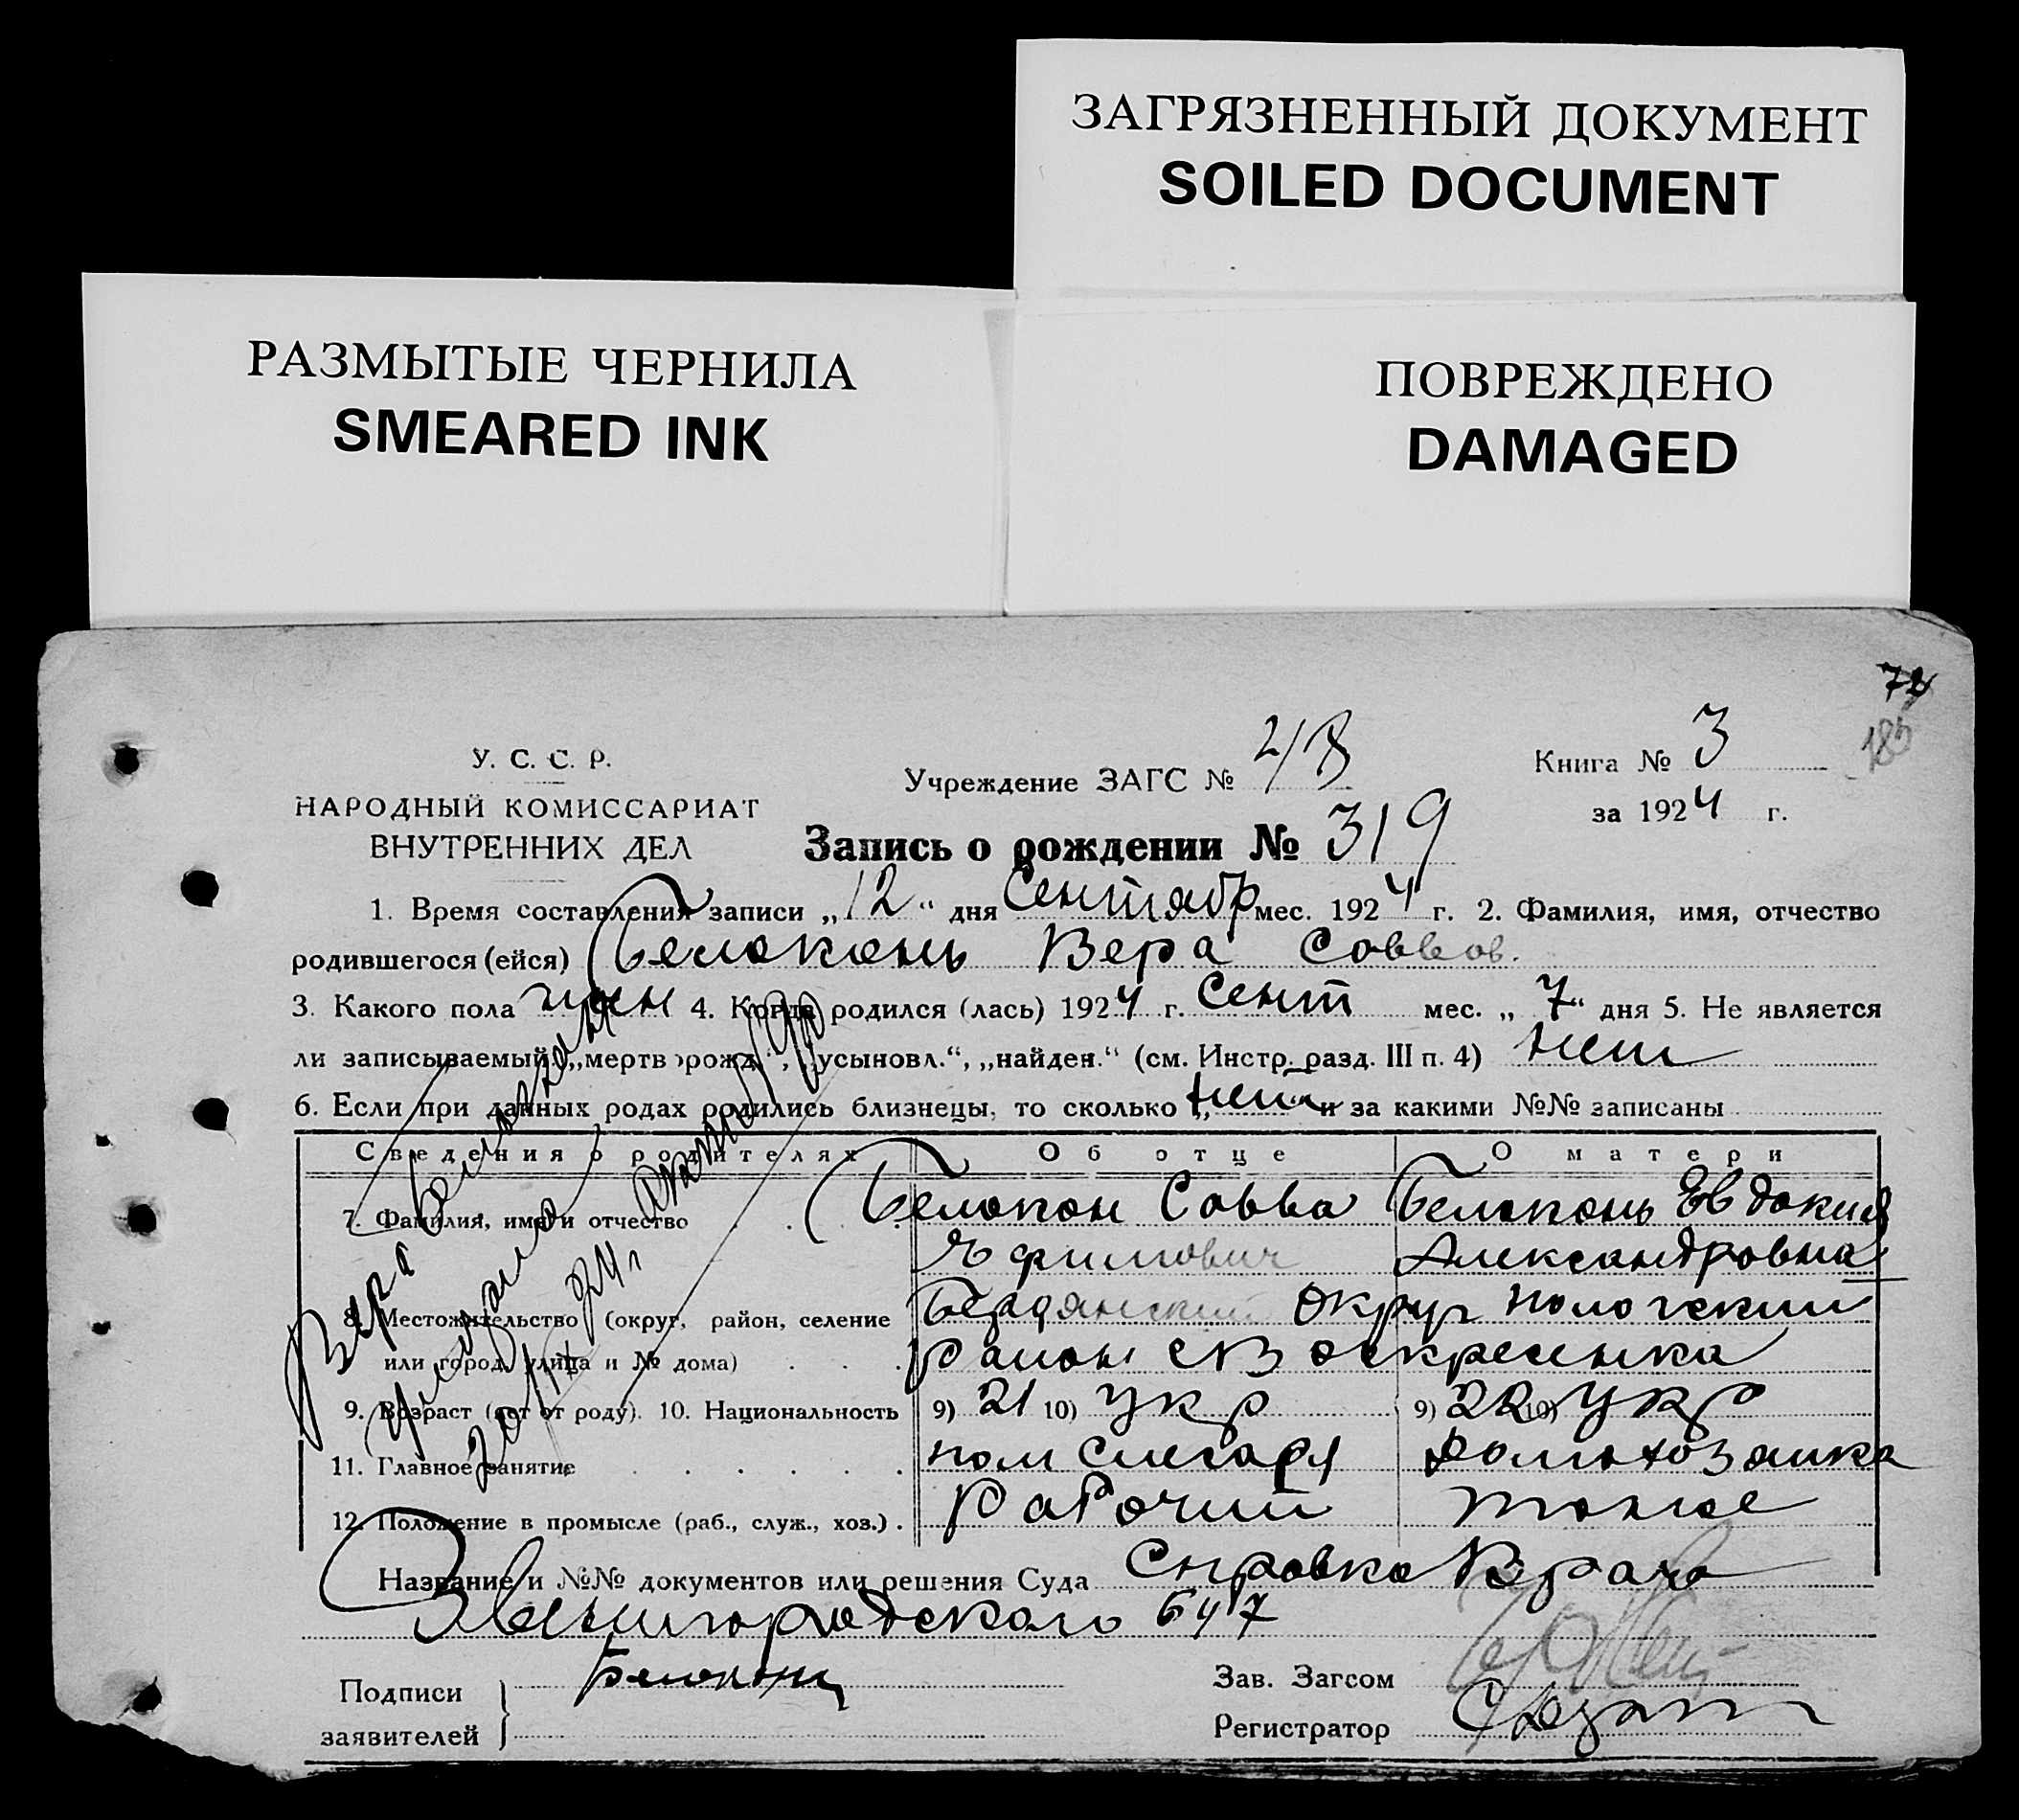 ЗАГРЯЗНЕННЫЙ ДОКУМЕНТ
SOILED DOCUMENT
РАЗМЫТЫЕ ЧЕРНИЛА
SMEARED INK
ПОВРЕЖДЕНО
DAMAGED
72
185
У. С. С. Р.
НАРОДНЫЙ КОМИССАРИАТ
ВНУТРЕННИХ ДЕЛ
Учреждение ЗАГС №
Книга № 3
за 1924 г.
Запись о рождении № 319
1. Время составления записи „12“ дня Сентябр мес. 1924 г. 2. Фамилия, имя, отчество
родившегося (ейся) Белоконь Вера Саввов.
3. Какого пола жен 4. Когда родился (лась) 1924 г. Сент мес. „7“ дня 5. Не является
ли записываемый „мертворожд.“, „усыновл.“, „найден.“ (см. Инстр. разд. III п. 4) нет
6. Если при данных родах родились близнецы, то сколько „нет“ и за какими №№ записаны
Сведения о родителях Об отце О матери
7. Фамилия, имя и отчество Белокон Савва Белоконь Евдокия
Ефимович Александровна
8. Местожительство (округ, район, селение Бердянский Округ Пологский
или город, улица и № дома) район с Воскресенка
9. Возраст (лет от роду). 10. Национальность 9) 21 10) Укр 9) 22 10) Укр
11. Главное занятие пом Слесаря Домохозяйка
12. Положение в промысле (раб., служ., хоз.) Рабочий тоже
Название и №№ документов или решения Суда Справка Врача
Звенигородского 647
Подписи заявителей Белоконь
Зав. Загсом
Регистратор
Вера Белоконь
умерла